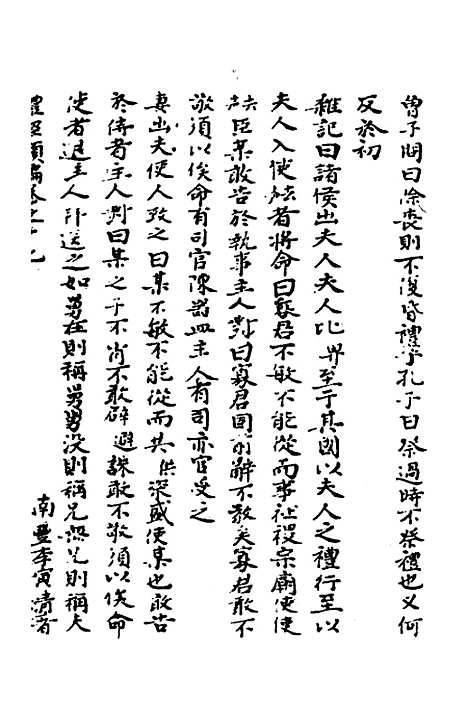 曾子問曰除喪則不復昏禮乎孔子曰祭過時不祭禮也又何
反於初
雜記曰諸侯出夫人夫人比界至于其國以夫人之禮行至以
夫人入使使者將命曰寡君不敏不能從而事社稷宗廟使使
臣某敢告於執事主人對曰寡君固前辭不敎矣寡君敢不
敬須以俟命有司官陳器皿主人有司亦官受之
妻出夫使人致之曰某不敏不能從而共粢盛使某也敢告
於侍者主人對曰某之子不肖不敢辟避誅敢不敬須以俟命
使者退主人拜送之如舅在則稱舅舅沒則稱兄無兄則稱夫
南豐李寅清著